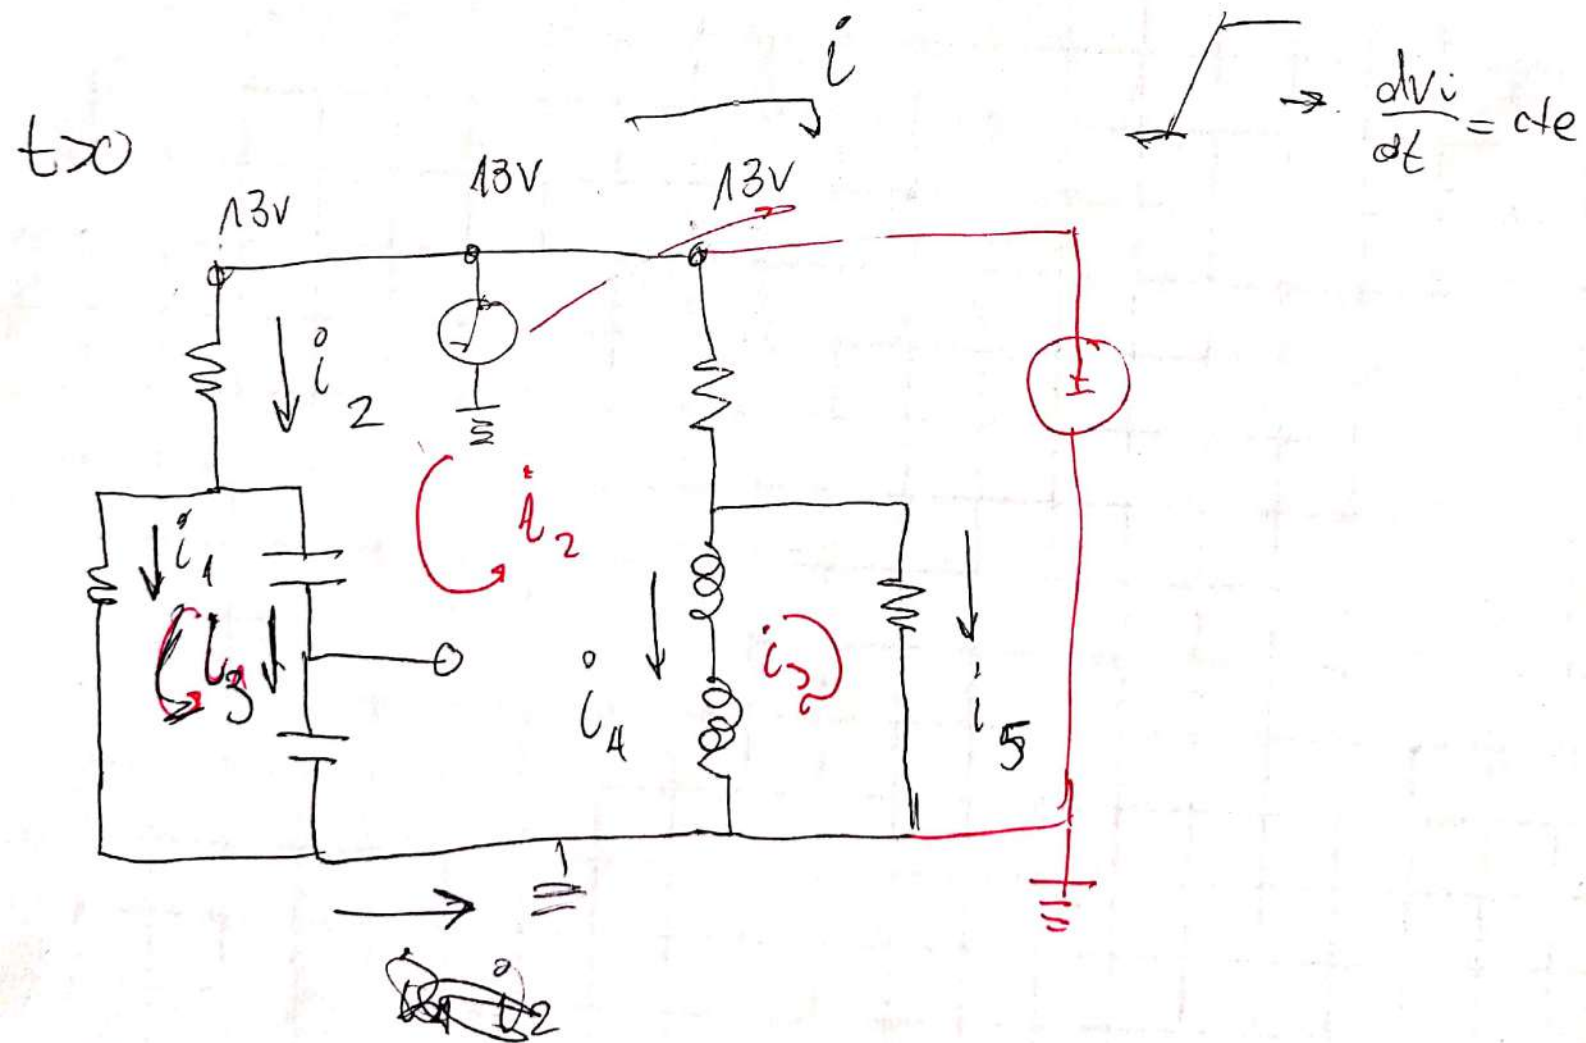 i
t>0
dvi
dt
= cte
13V
13V
13V
i2
i2
i1
i3
i3
i4
i5
i2